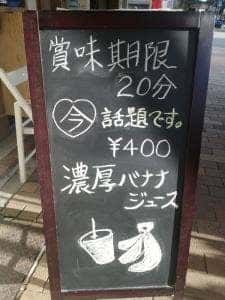 賞味期限
20分
今話題です。
¥400
濃厚バナナ
ジュース